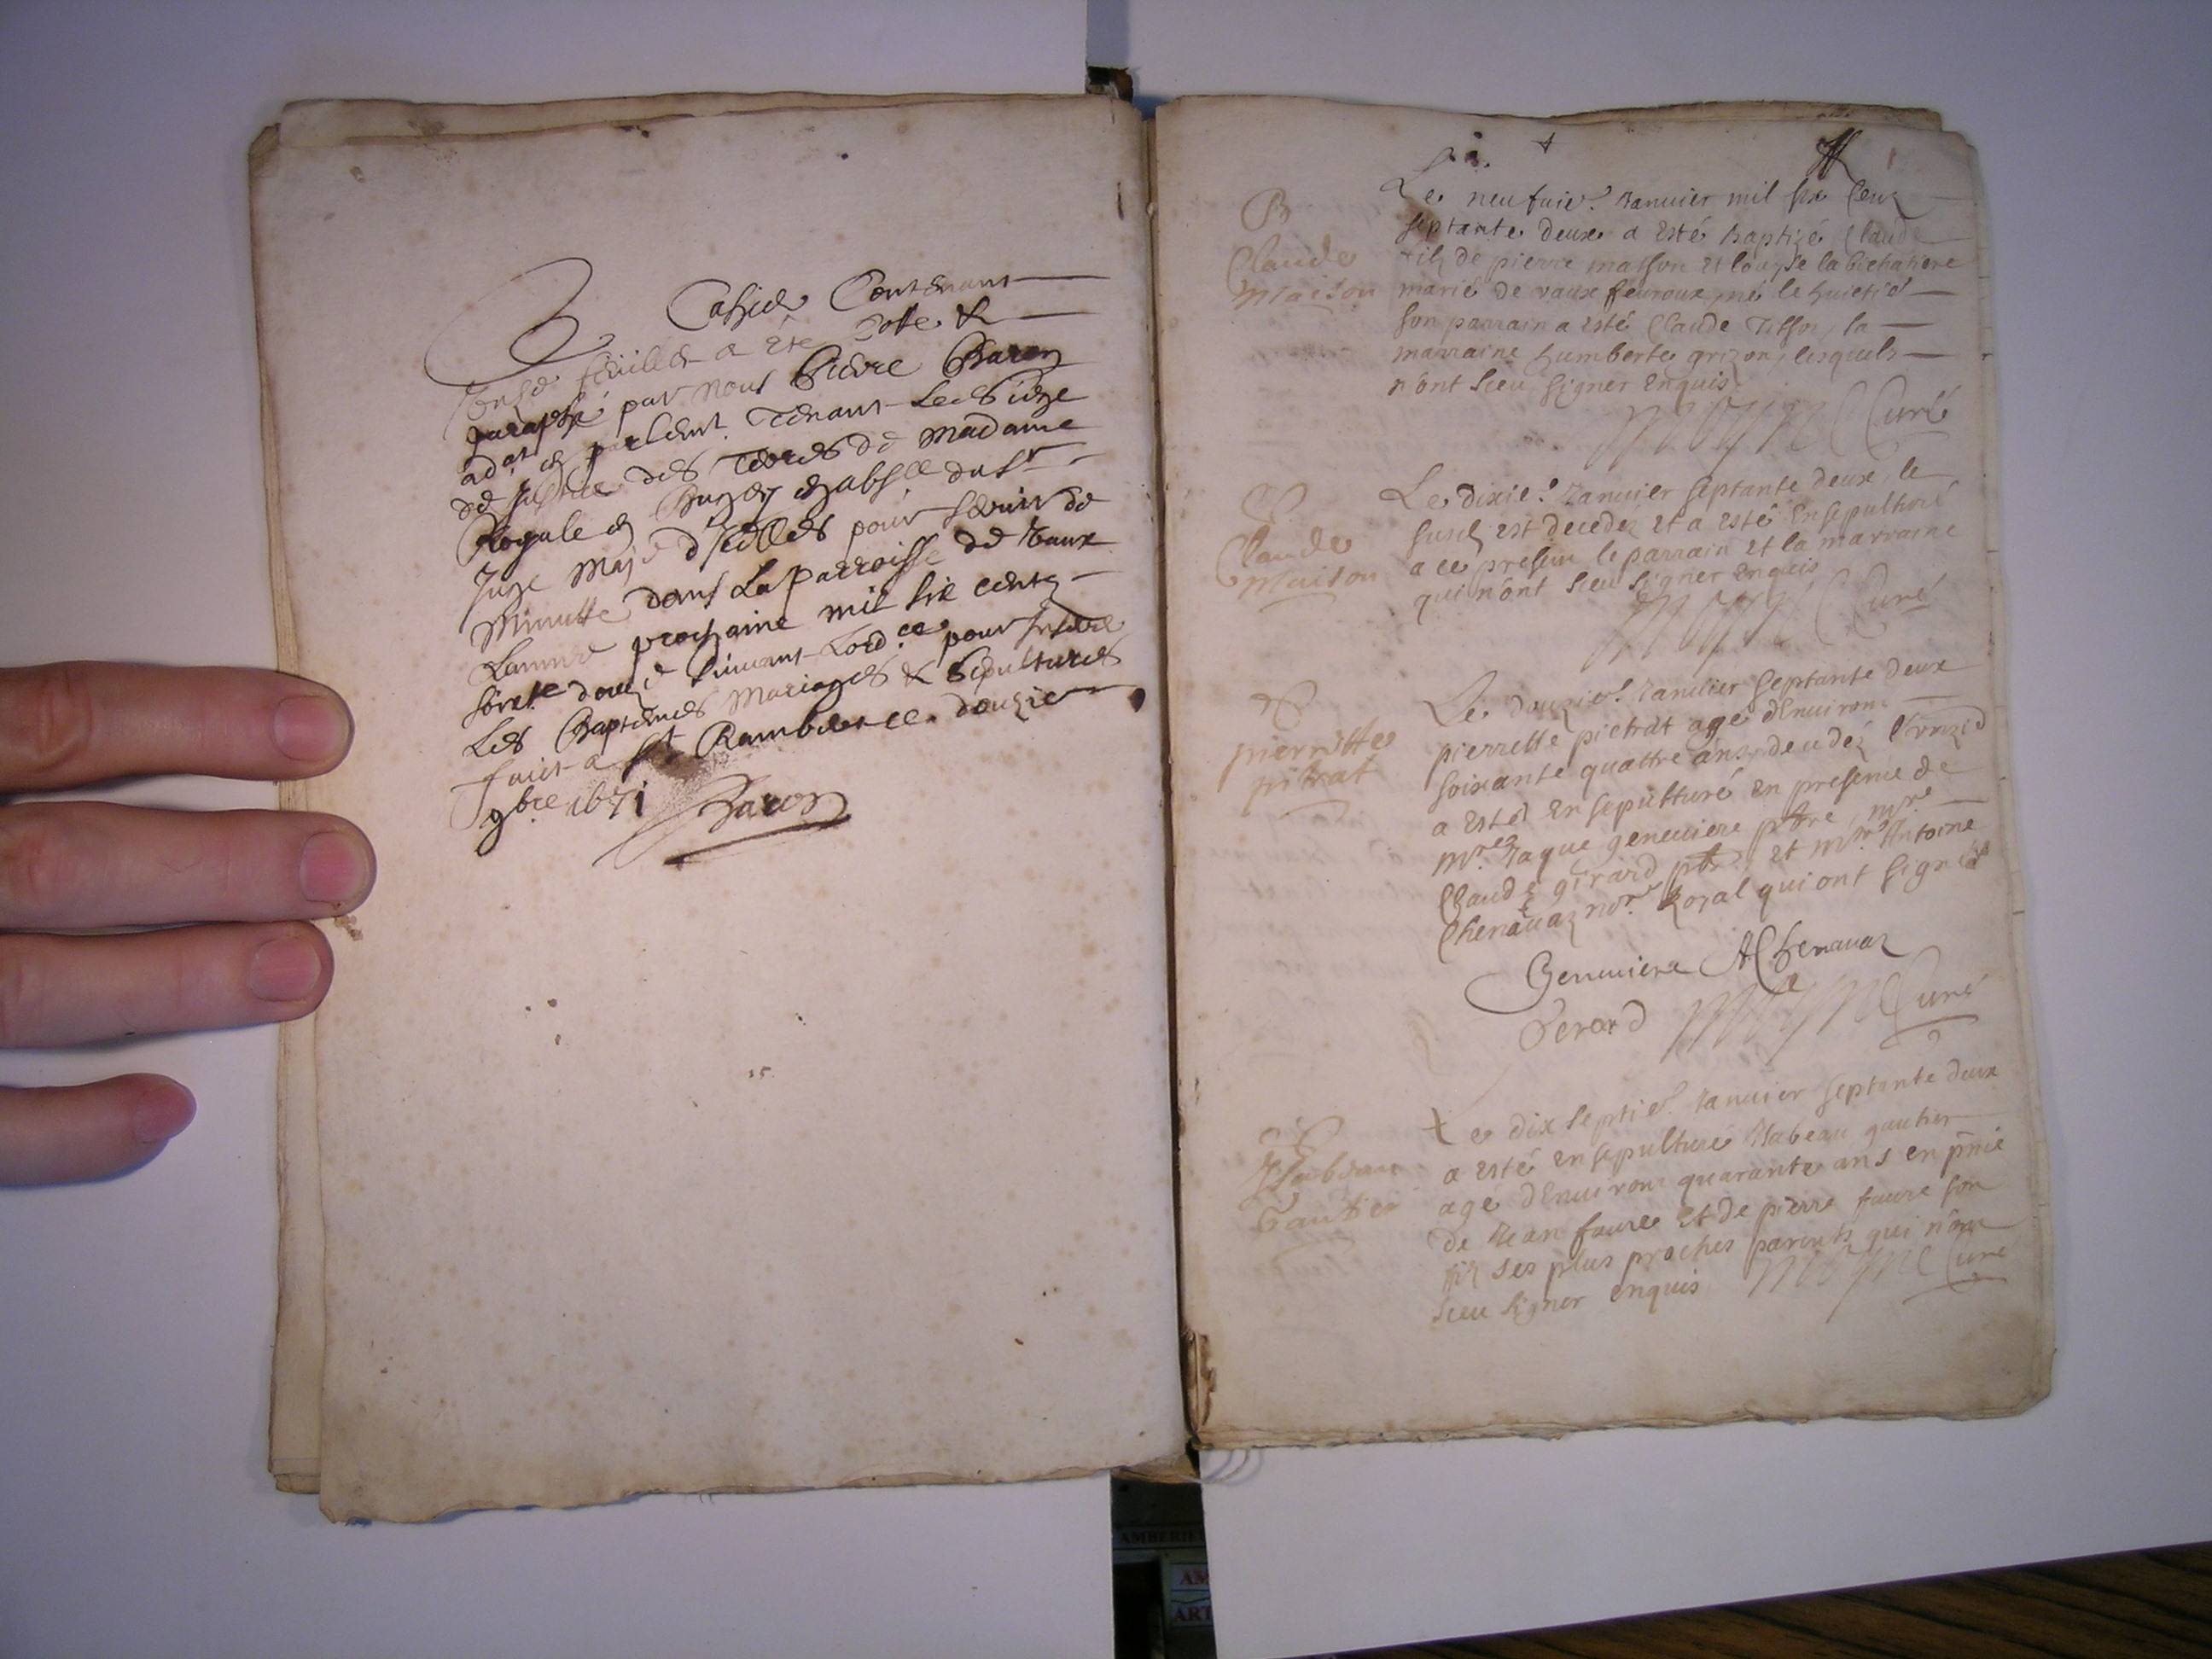 Cahier Contenant
feuilles a ete Cotte &
paraphé par nous Pierre Baron
adat en parlemt tenant le siege
de justice des terres de Madame
Royale en Bugey en absce du sr
Juge Maje d'icelles pour servir de
Minutte dans La parroisse de Vaux
Lannee prochaine mil six centz
septte douze suivant Lordce pour inserer
Les Baptemes Mariages & Sepultures
faict a St Rambert ce douzie
9bre 1671 Baron
Le neufuie. Januier mil six Centz
septante deux a esté baptizé Claude
filz de pierre masson et louyse la bichatiere
marié de vaux feuroux, né le huictie
son parrain a esté Claude Tisson, la
marraine humberte grizon, lesquels
n'ont sceu signer enquis.
Curé
B
Claude
Maison
Le dixie. Januier septante deux, le
susd est decedez et a esté ensepulturé
a ce presein le parrain et la marraine
qui n'ont sceu signer enquis
Curé
S
Claude
Maison
Le douzie. Januier septante deux
pierrette pietrat agé d'enuiron
soixante quattre ans, decedéz
a esté ensepulturé en presence de
mre Jaque geneuiere pbre, mre
Claude girard pbr, et mre Antoine
Chenauaz nore Royal qui ont signéz
S
pierrette
pitrat
Geneuiere AChenauaz
Gerard Curé
Le dix septie. Januier septante deux
a esté ensepulturé Isabeau gautier
agé d'enuiron quarante ans en pnce
de Jean faure et de pierre faure son
filz ses plus proches parents qui n'ont
sceu signer enquis Curé
S
Isabeau
Gautier
AMBERIE
AM
ART